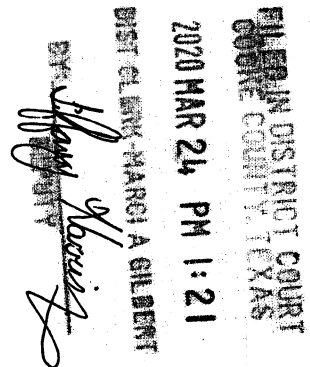 FILED IN DISTRICT COURT
COOKE COUNTY, TEXAS
2020 MAR 24 PM 1:21
DIST CLERK-MARCI A GILBERT
BY: Tiffany Harris
DEPUTY